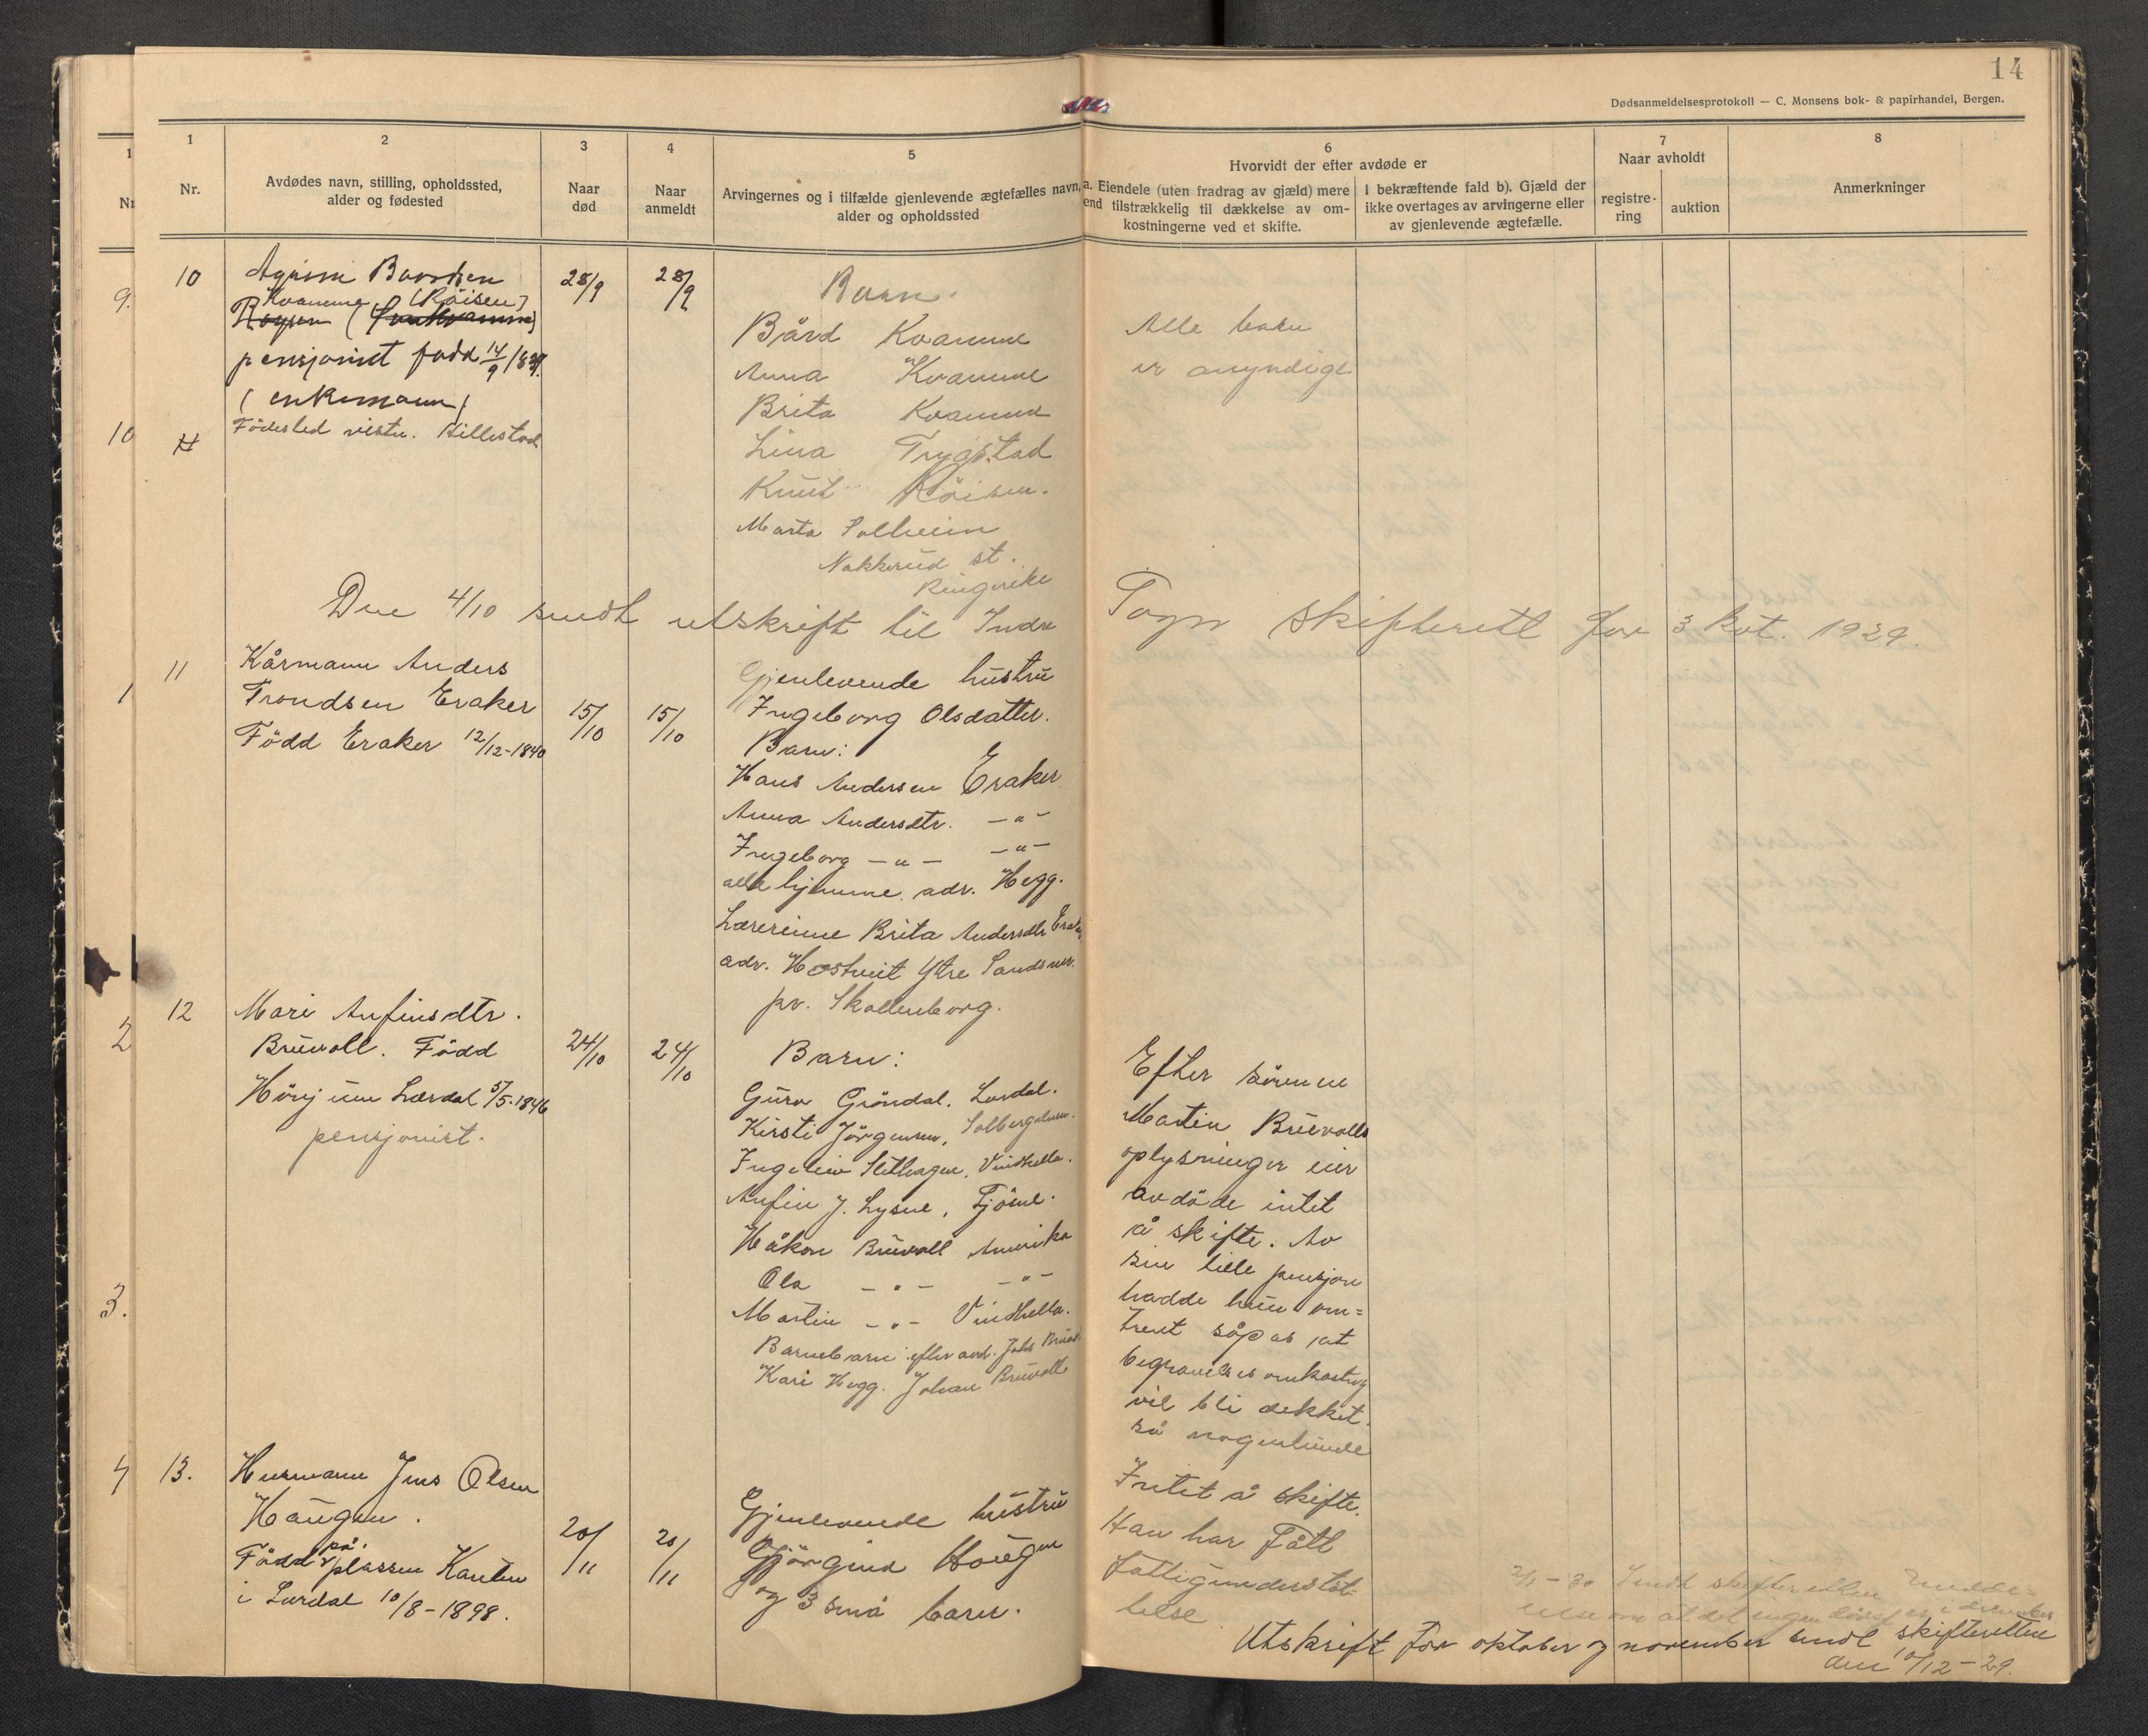 14
Dødsanmeldelsesprotokoll — C. Monsens bok- & papirhandel, Bergen.
1
Nr.
2
Avdødes navn, stilling, opholdssted,
alder og fødested
3
Naar
død
4
Naar
anmeldt
5
Arvingernes og i tilfælde gjenlevende ægtefælles navn,
alder og opholdssted
6
Hvorvidt der efter avdøde er
a. Eiendele (uten fradrag av gjæld) mere
end tilstrækkelig til dækkelse av om-
kostningerne ved et skifte.
I bekræftende fald b). Gjæld der
ikke overtages av arvingerne eller
av gjenlevende ægtefælle.
7
Naar avholdt
registre-
ring
auktion
8
Anmerkninger
10
Kvamme (Röisen)
pensjonist född 14/9
(enkemann)
Födested Hillestad
28/9
28/9
Barn.
Bård Kvamme
Anna Kvamme
Brita Kvamme
Lina Trygstad
Knut Röisen.
Marta Solheim
Nakkerud st.
Ringerike
Alle barn
er amyndige
Den 4/10 sendt utskrift til Indre
Sogn skifterett for 3 kvt. 1929.
11
Kårmann Anders
Trondsen Eraker
Född Eraker 12/12-1840
15/10
15/10
Gjenlevende hustru
Ingeborg Olsdatter.
Barn:
Hans Andersen Eraker
Anna Andersdtr. -"-
Ingeborg -"- -"-
alle hjemme. adr. Hegg.
Lærerinne Brita Andersdtr Eraker
adr. Hostveit Ytre Sandsver.
pr. Skollenborg.
12
Mari Anfinsdtr.
Bruvoll. Född
Hönjum Lærdal 5/5-1846
pensjonist.
24/10
24/10
Barn:
Guro Gröndal. Lærdal.
Kirsti Jörgensen,
Ingelein Vindhella.
Anfin J. Lysne, Tjöme.
Håkon Bruvoll Amerika
Ola -"- -"-
Martin -"- Vindhella.
Barnebarn: efter avd. Johs Bruvoll
Kari Hegg. Johan Bruvoll
Efter sönnen
Martin Bruvolls
oplysninger eier
avdöde intet
å skifte. Av
sin lille pensjon
hadde hun om=
trent såpas at
begravelsesomkostng
vil bli dekket.
så nogenlunde
13.
Hermann Jens Olsen
Haugen.
Född på plassen Kanten
i Lærdal 10/8-1898.
20/11
20/11
Gjenlevende hustru
Haugen
og 3 små barn.
Intet å skifte.
Han har fått
fattigunderstöt-
telse
2/1-30 Sendt skifteretten medde-
Utskrift for oktober og november sendt skifteretten
den 10/12-29.
1
Nr
9.
10
1
2
3.
4